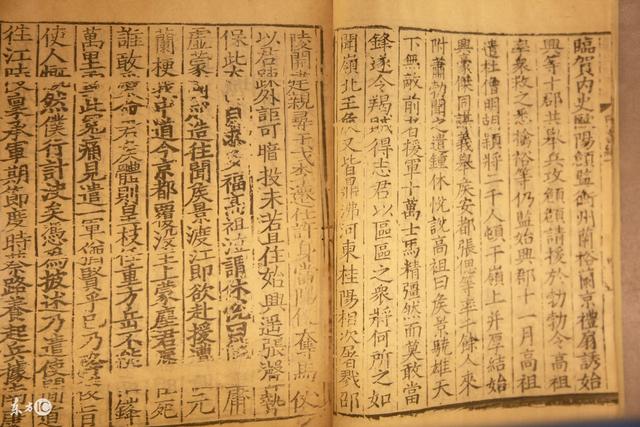 臨賀內史歐陽頠監衡州蘭裕蘭京禮扇誘始
興等十郡共舉兵攻頠頠請援於勃勃令高祖
率衆救之悉擒裕等仍監始興郡十一月高祖
遣杜僧明胡穎將二千人頓于嶺上并厚結始
興豪傑同謀義舉侯安都張偲等率千餘人來
附蕭勃聞之遣鍾休悅說高祖曰侯景驍雄天
下無敵前者援軍十萬士馬精彊然而莫敢當
鋒遂令羯賊得志君以區區之衆將何所之如
聞嶺北王侯又皆鼎沸河東桂陽相次屠戮邵
陵開建親尋干戈李遷仕許身當陽便奪馬仗
以君疎外詎可暗投未若且住始興遙張聲勢
保此太 自求多福高祖泣謂休悅曰 庸
虛蒙國成造往聞侯景渡江即欲赴援遭 元
蘭梗我中道今京都覆沒主上蒙塵君辱臣死
誰敢愛命君侯體則皇枝任重方岳不能 鋒
萬里雪此冤痛見遣一軍猶賢乎已乃 旨
使人慨然僕行計決矣憑為披述乃遣使間道
往江陵稟承軍期節度時蔡路養起兵據南